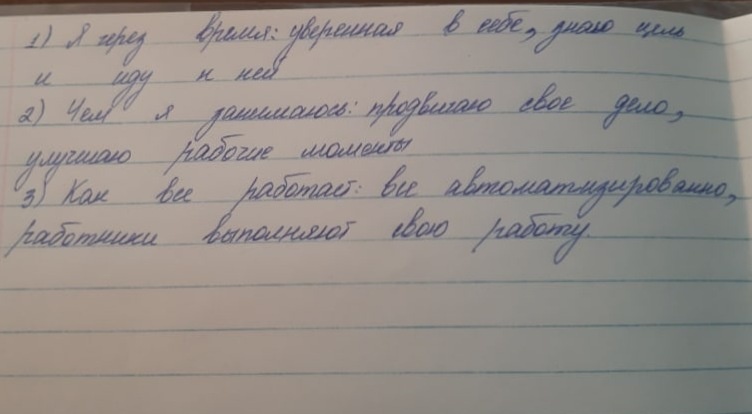 1) Я через время: уверенная в себе, знаю цель
и иду к ней
2) Чем я занимаюсь: продвигаю свое дело,
улучшаю рабочие моменты
3) Как все работает: все автоматизированно,
работники выполняют свою работу.